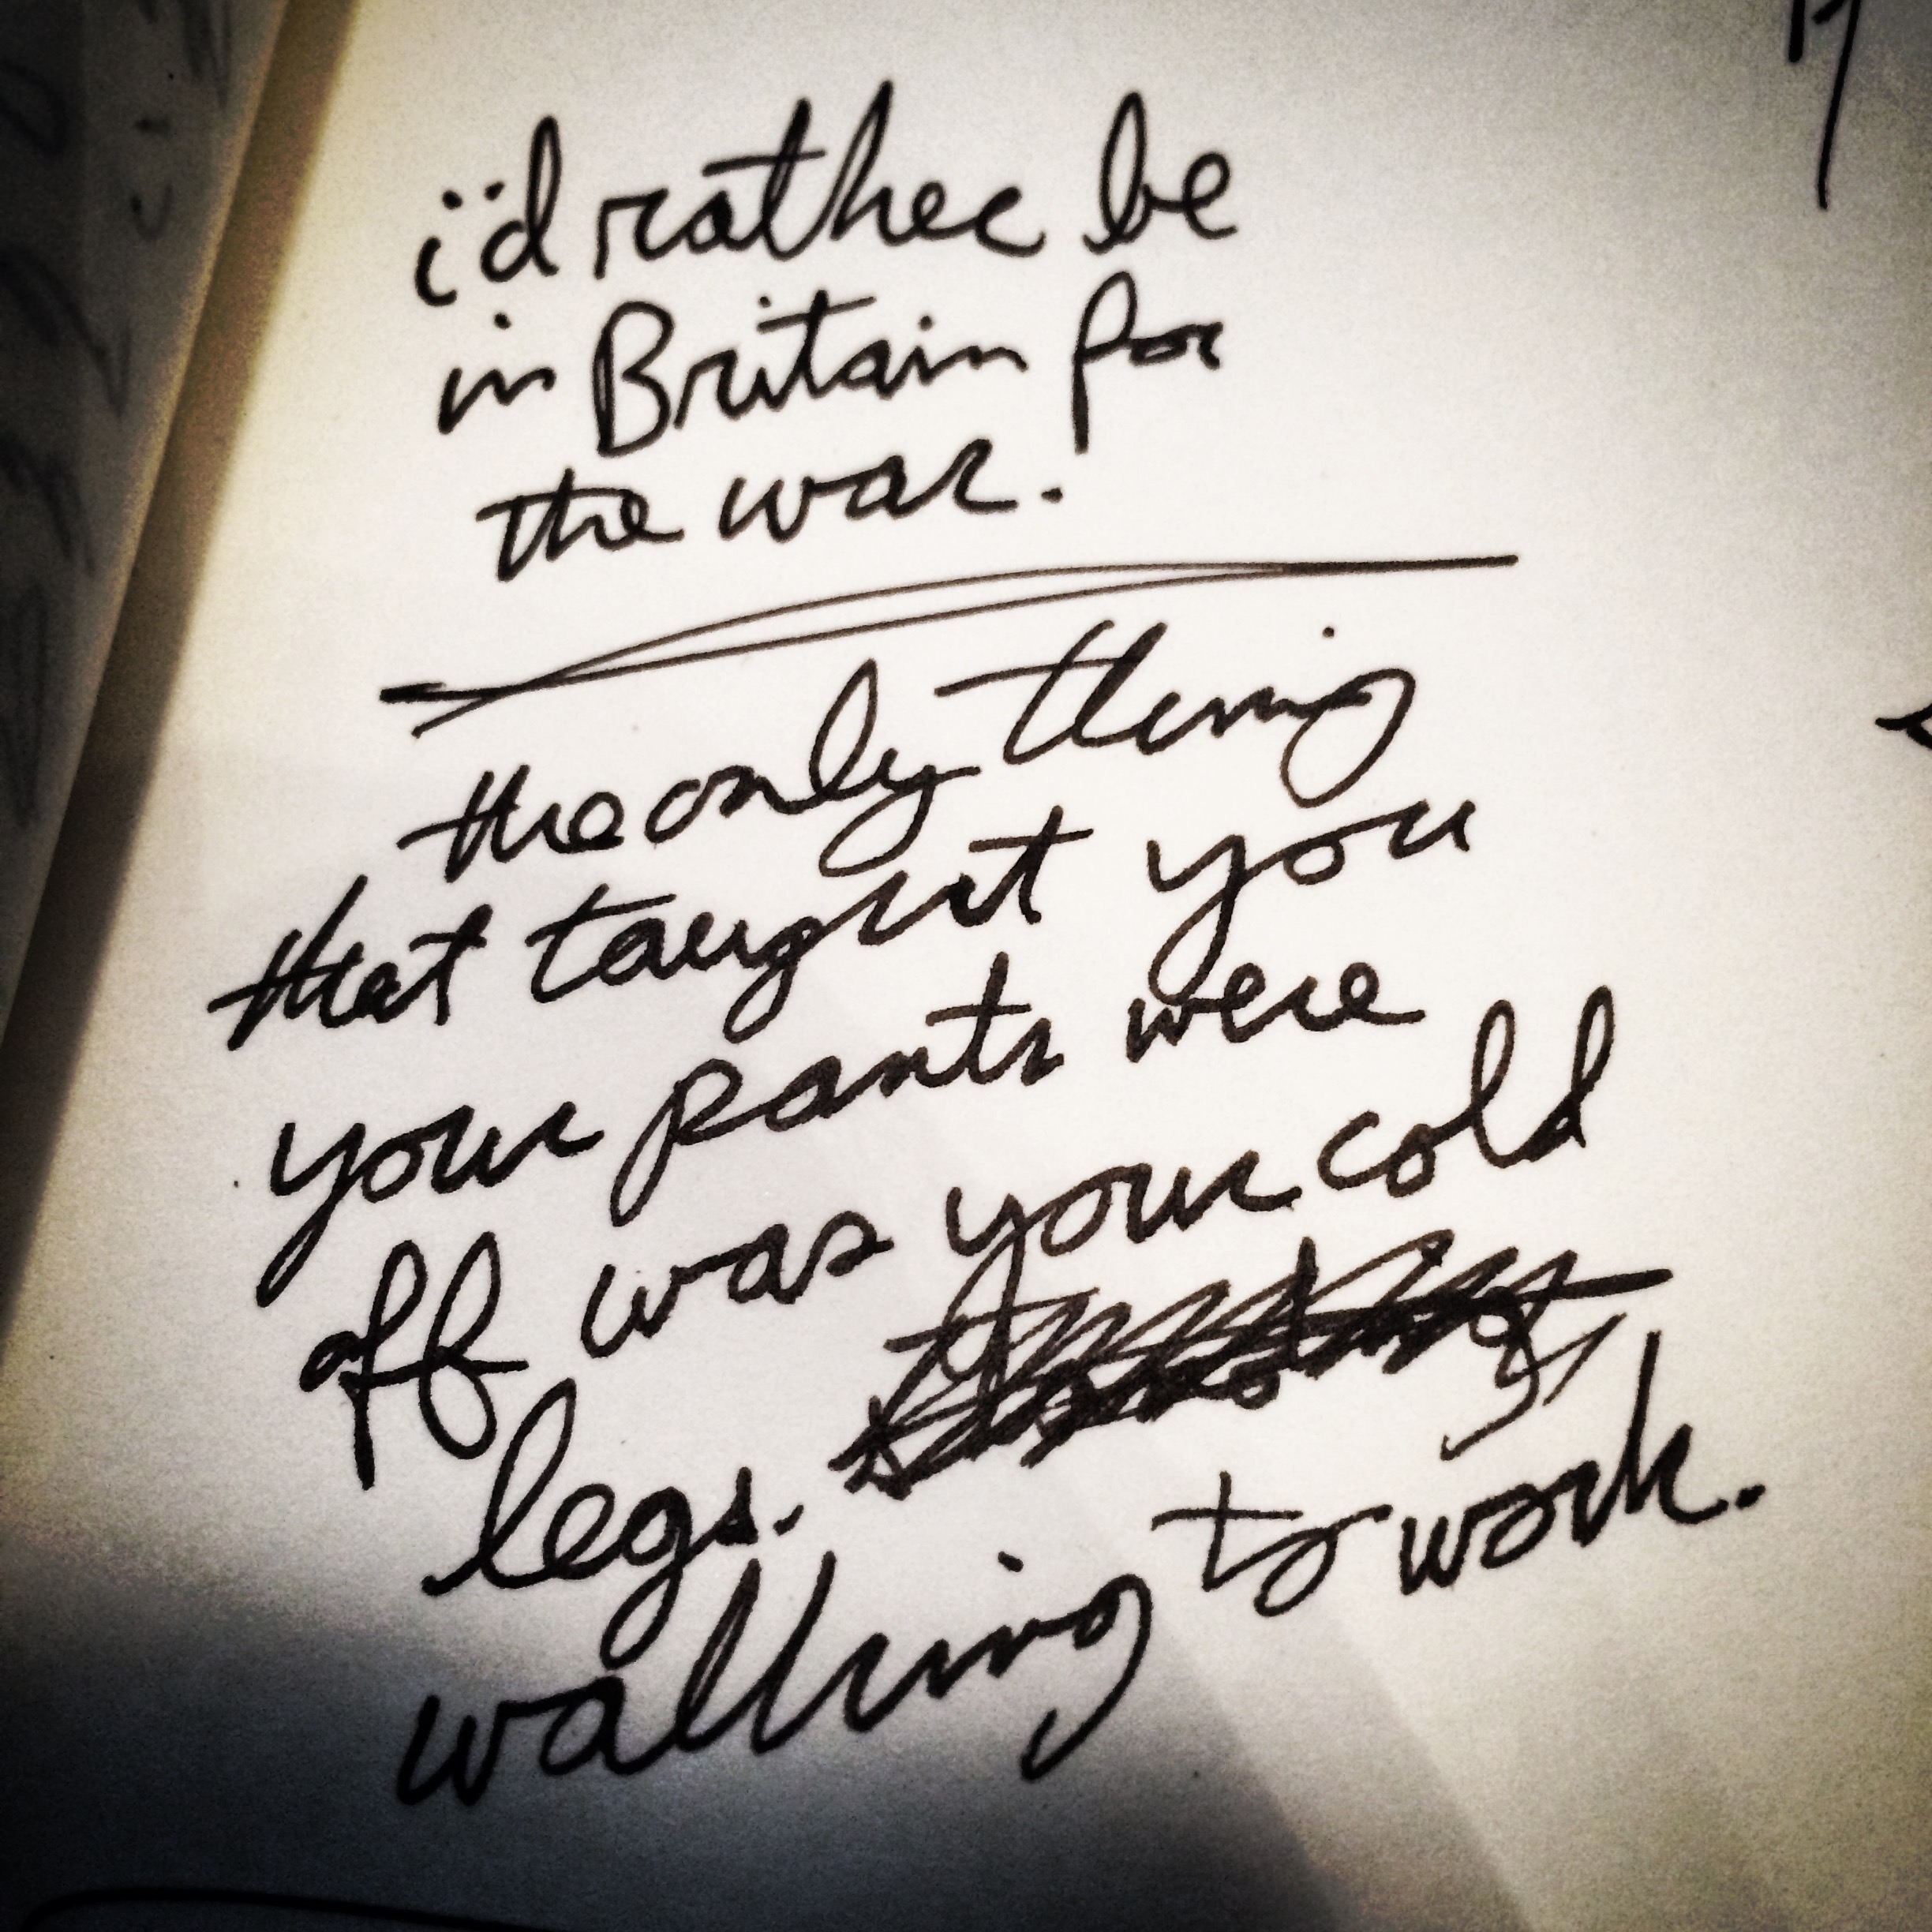 i'd rather be
in Britain for
the war.
the only thing
that taught you
your pants were
off was your cold
legs.
walking to work.